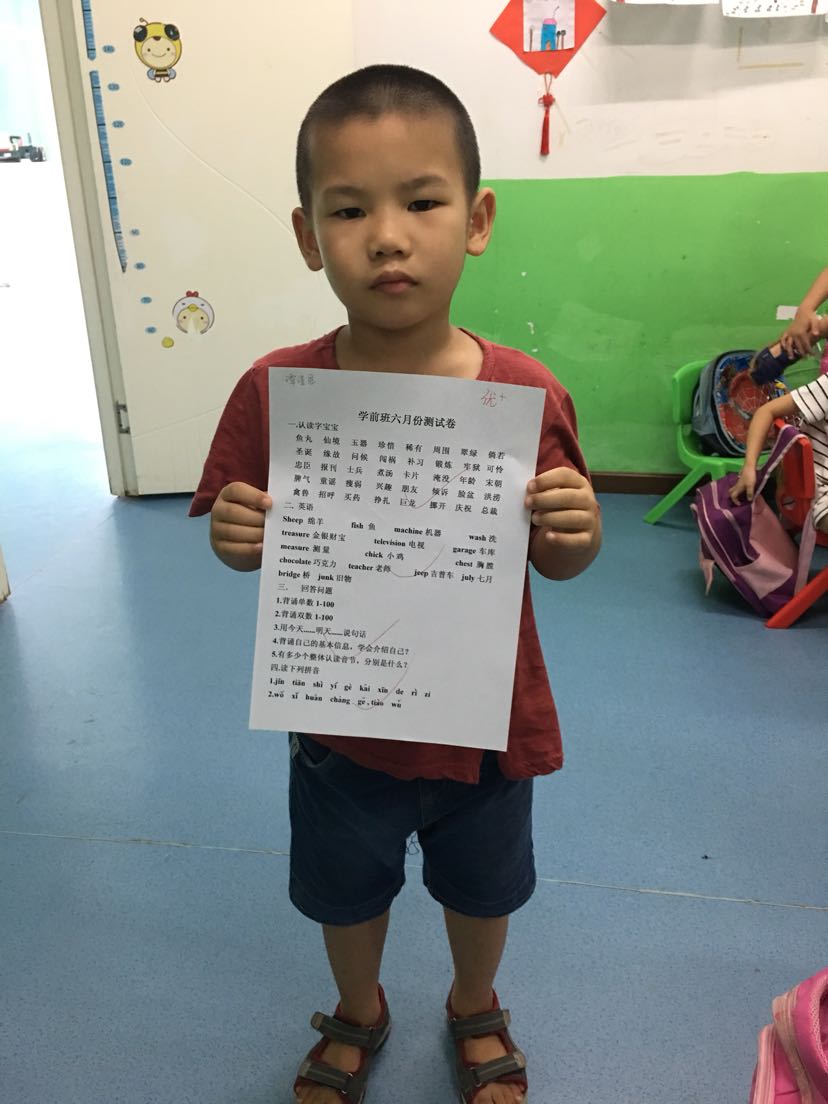 优+
学前班六月份测试卷
一.认读字宝宝
鱼丸 仙境 玉器 珍惜 稀有 周围 翠绿 倘若
圣诞 缘故 问候 闯祸 补习 锻炼 牢狱 可怜
忠臣 报刊 士兵 煮汤 卡片 淹没 年龄 宋朝
脾气 童谣 瘦弱 兴趣 朋友 倾诉 脸盆 洪涝
禽兽 招呼 买药 挣扎 巨龙 挪开 庆祝 总裁
二、英语
Sheep 绵羊 fish 鱼 machine 机器 wash 洗
treasure 金银财宝 television 电视 garage 车库
measure 测量 chick 小鸡 chest 胸膛
chocolate 巧克力 teacher 老师 jeep 吉普车 july 七月
bridge 桥 junk 旧物
三、 回答问题
1.背诵单数 1-100
2.背诵双数 1-100
3.用今天......明天......说句话
4.背诵自己的基本信息，学会介绍自己？
5.有多少个整体认读音节，分别是什么？
四.读下列拼音
1.jīn tiān shì yí gè kāi xīn de rì zi
2.wǒ xǐ huān chàng gē , tiào wǔ